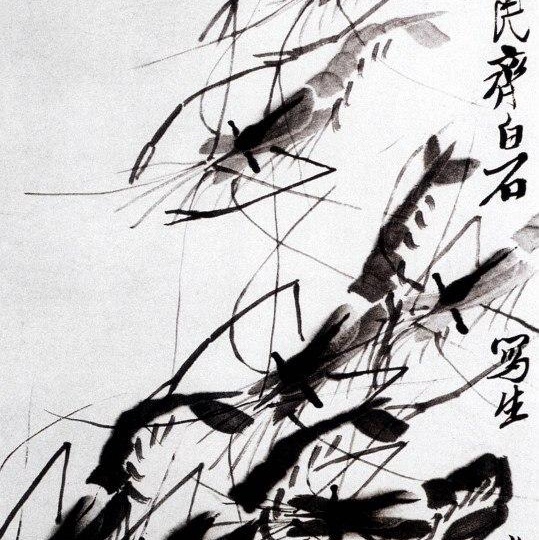 齊白石
寫生